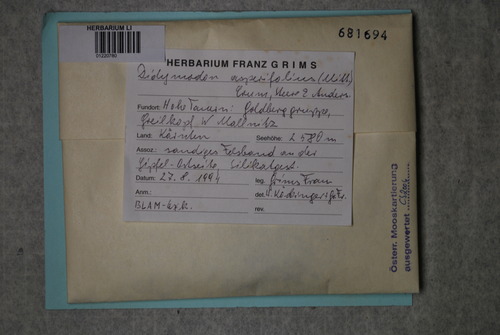 HERBARIUM LI
01220780
681694
HERBARIUM FRANZ GRIMS
Didymodon asperifolius (Mitt.)
Crum, Steere & Anders.
Fundort: Hohe Tauern: Goldberggruppe,
Greilkopf W Mallnitz
Land: Kärnten Seehöhe: 2580 m
Assoz.: sandiges Felsband an der
Gipfel-Ostseite, Silikatgest.
Datum: 27. 8. 1994 leg. Grims Franz
Anm.: det.
BLAM-Exk. rev.
Österr. Mooskartierung
ausgewertet